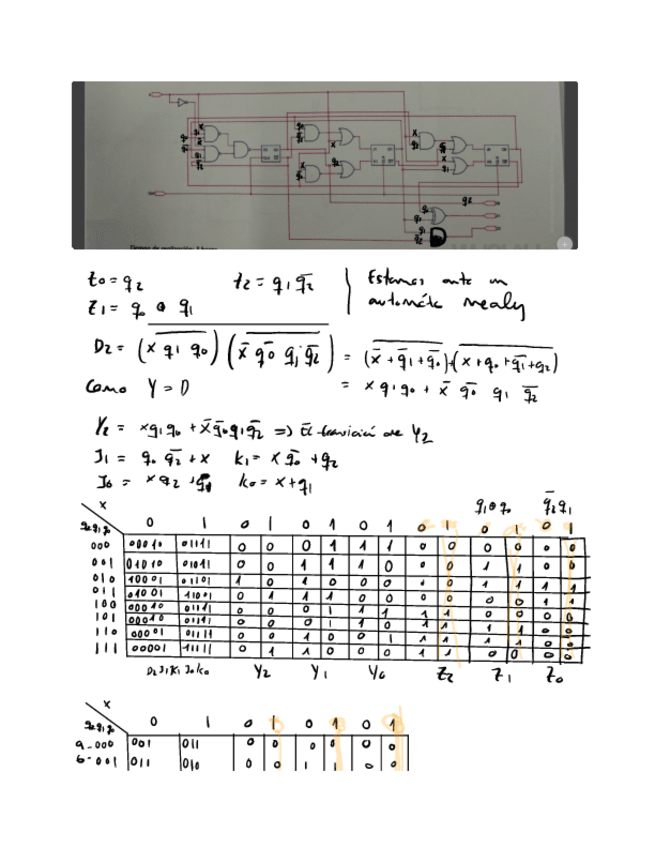 t0 = q2    t2 = q1 q̄2    Estamos ante un
Z1 = q0 ⊕ q1    automáta mealy
D2 = (x q1 q0) (x̄ q̄0 q1 q̄2) = (x̄ + q̄1 + q̄0) (x + q0 + q̄1 + q2)
Como Y = D    = x q1 q0 + x̄ q̄0 q1 q̄2
Y2 = x q1 q0 + x̄ q̄0 q1 q̄2 => de Y2
J1 = q0 q̄2 + x    k1 = x q̄0 + q2
k0 = x + q1
x    q1⊕q0    q̄2 q1
q2 q1 q0    0    1    0    1    0    1    0    1    0    1    0    1    0    1
000    00010    01111    0    0    0    1    1    1    0    0    0    0    0    0
001    01010    01011    0    0    1    1    1    0    0    0    1    1    0    0
010    10001    01101    1    0    1    0    0    0    0    0    1    1    1    1
011    01001    11001    0    1    1    1    0    0    0    0    0    0    1    1
100    00010    01111    0    0    0    1    1    1    1    1    0    0    0    0
101    00010    01111    0    0    0    1    1    0    1    1    1    1    0    0
110    00001    01111    0    0    1    0    0    1    1    1    1    1    0    0
111    00001    11111    0    1    1    0    0    0    1    1    0    0    0    0
D2 J1 K1 J0 K0    Y2    Y1    Y0    Z2    Z1    Z0
x
q2 q1 q0    0    1    0    1    0    1    0    1
a-000    001    011    0    0    0    0    0    0
b-001    011    010    0    0    1    1    0    0